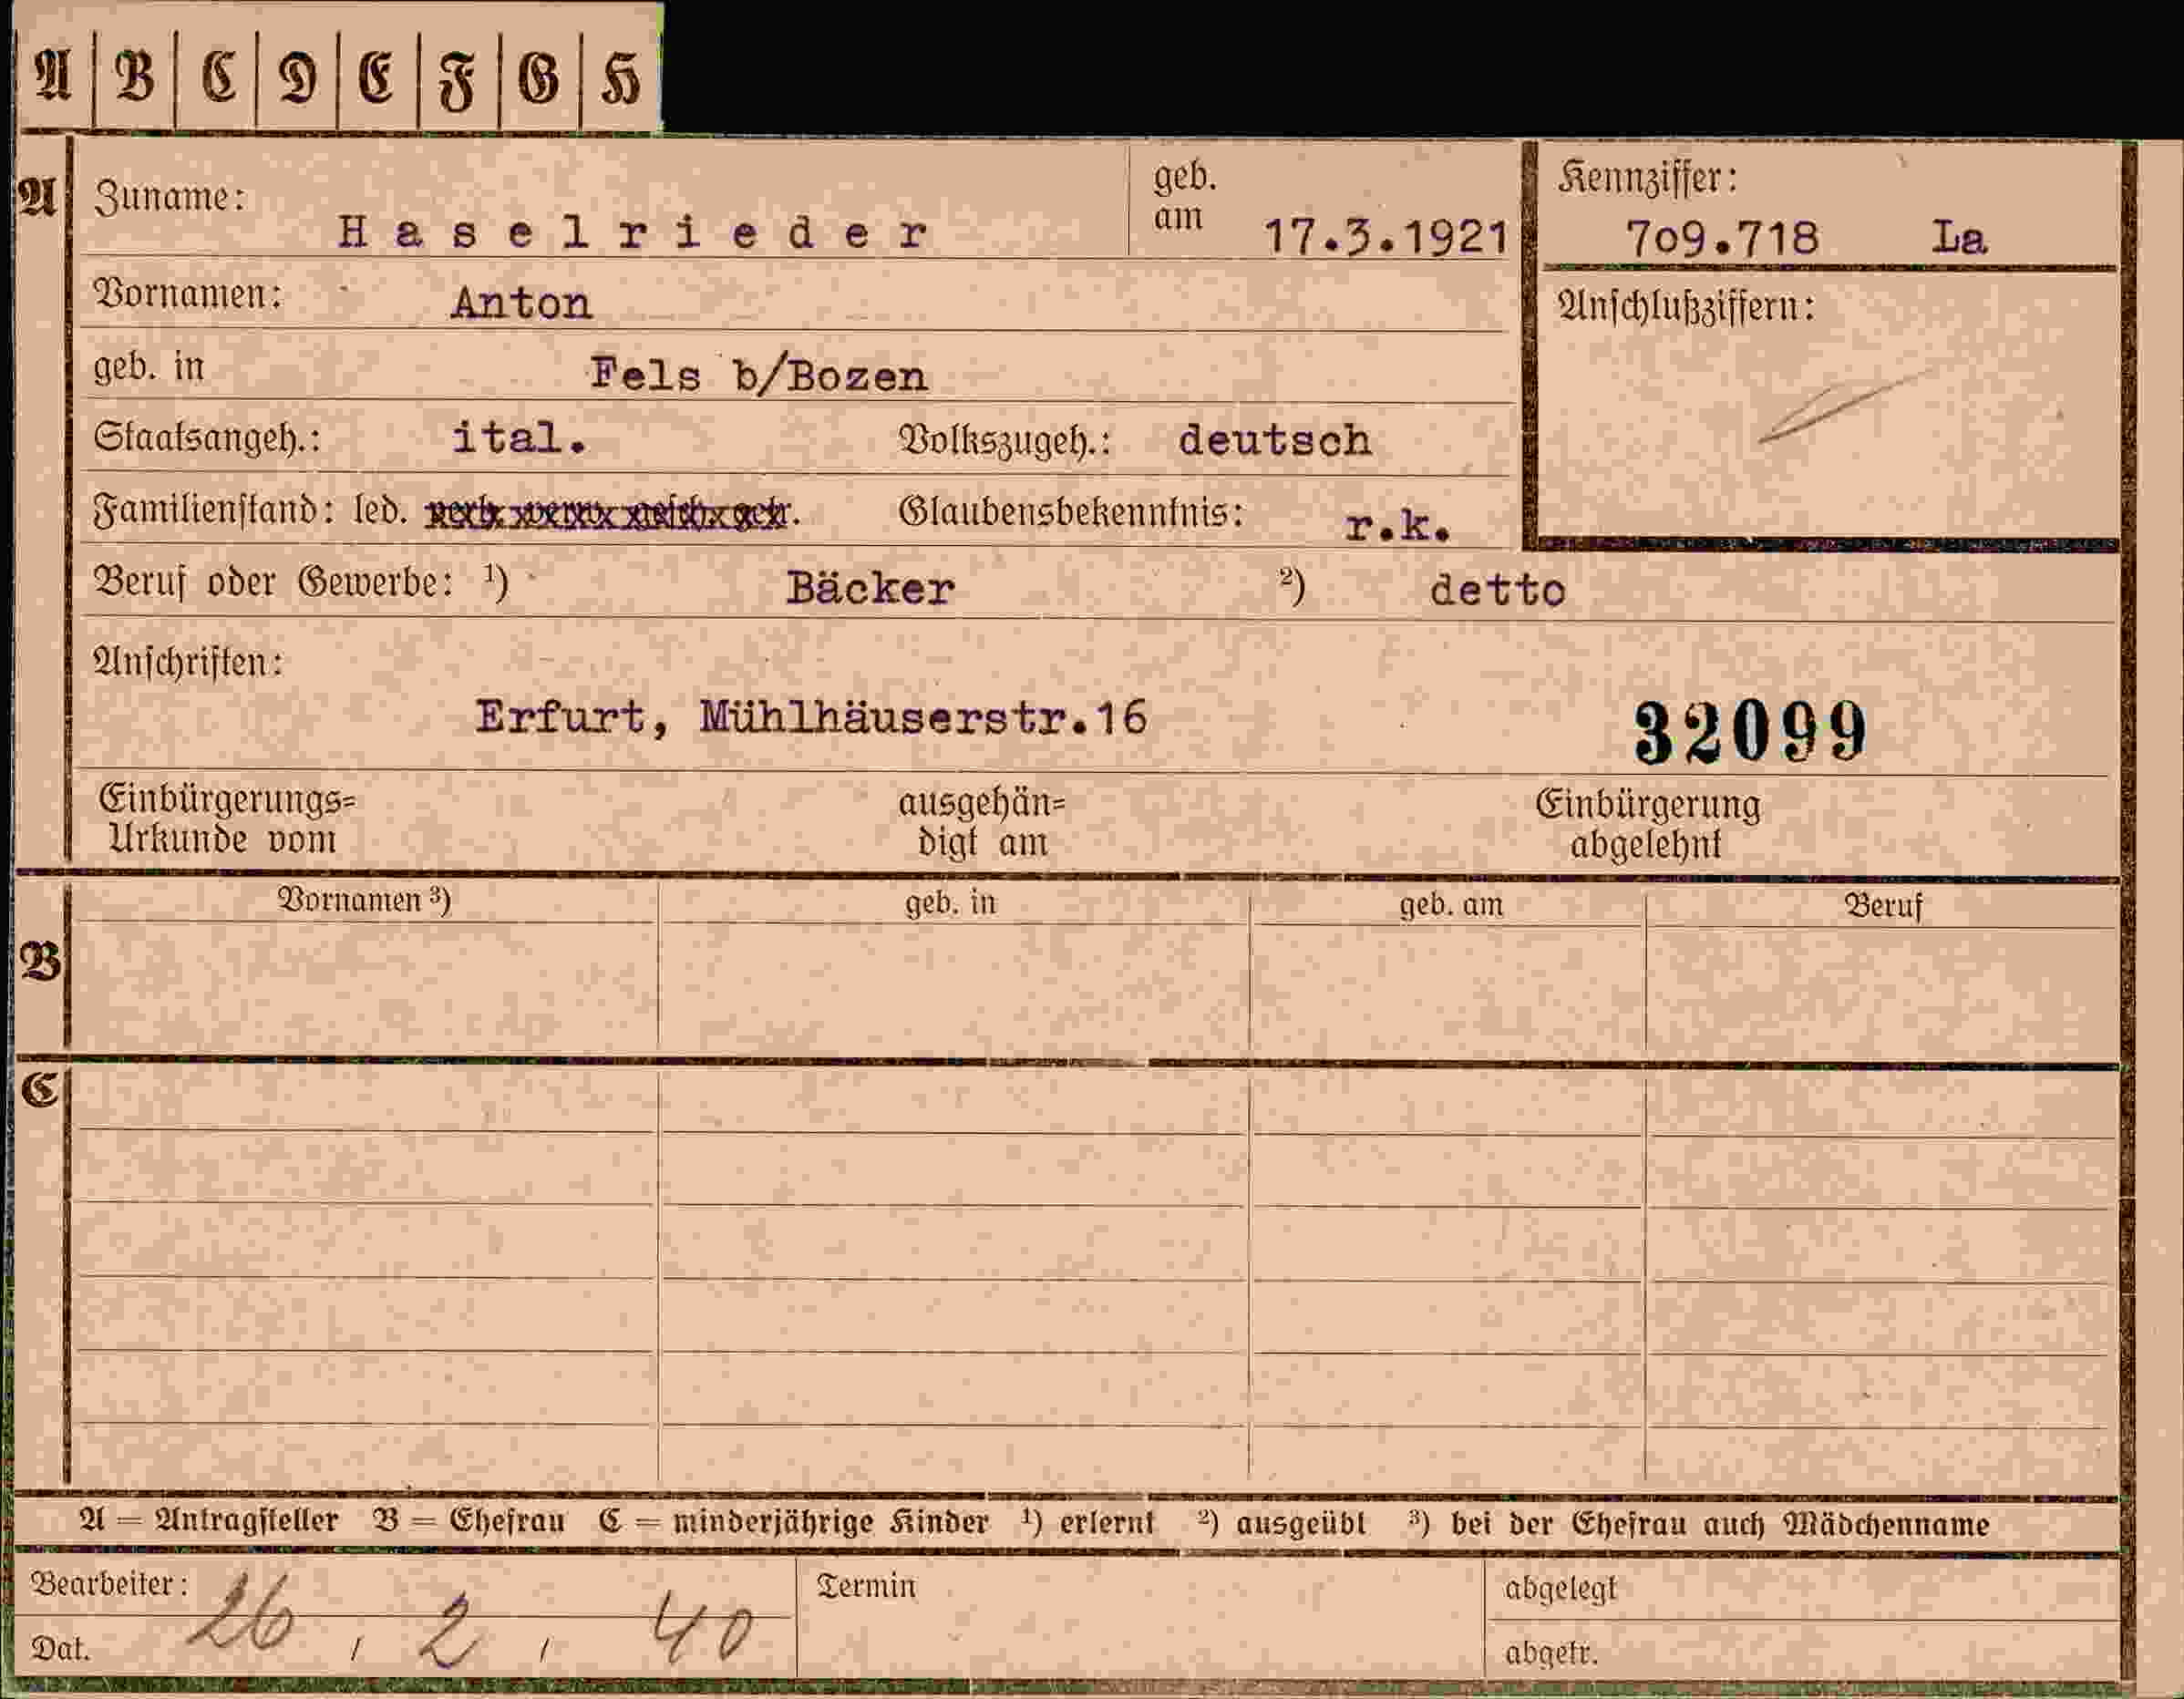 A B C D E F G H
A
Zuname: Haselrieder
geb. am 17.3.1921
Kennziffer:
709.718 La
Vornamen: Anton
Anschlußziffern:
geb. in Fels b/Bozen
Staatsangeh.: ital. Volkszugeh.: deutsch
Familienstand: led. Glaubensbekenntnis: r.k.
Beruf oder Gewerbe: ¹) Bäcker ²) detto
Anschriften:
Erfurt, Mühlhäuserstr.16
32099
Einbürgerungs=
Urkunde vom
ausgehän=
digt am
Einbürgerung
abgelehnt
B
Vornamen ³) geb. in geb. am Beruf
C
A = Antragsteller B = Ehefrau C = minderjährige Kinder ¹) erlernt ²) ausgeübt ³) bei der Ehefrau auch Mädchenname
Bearbeiter:
Dat. 26 / 2 / 40
Termin
abgelegt
abgetr.